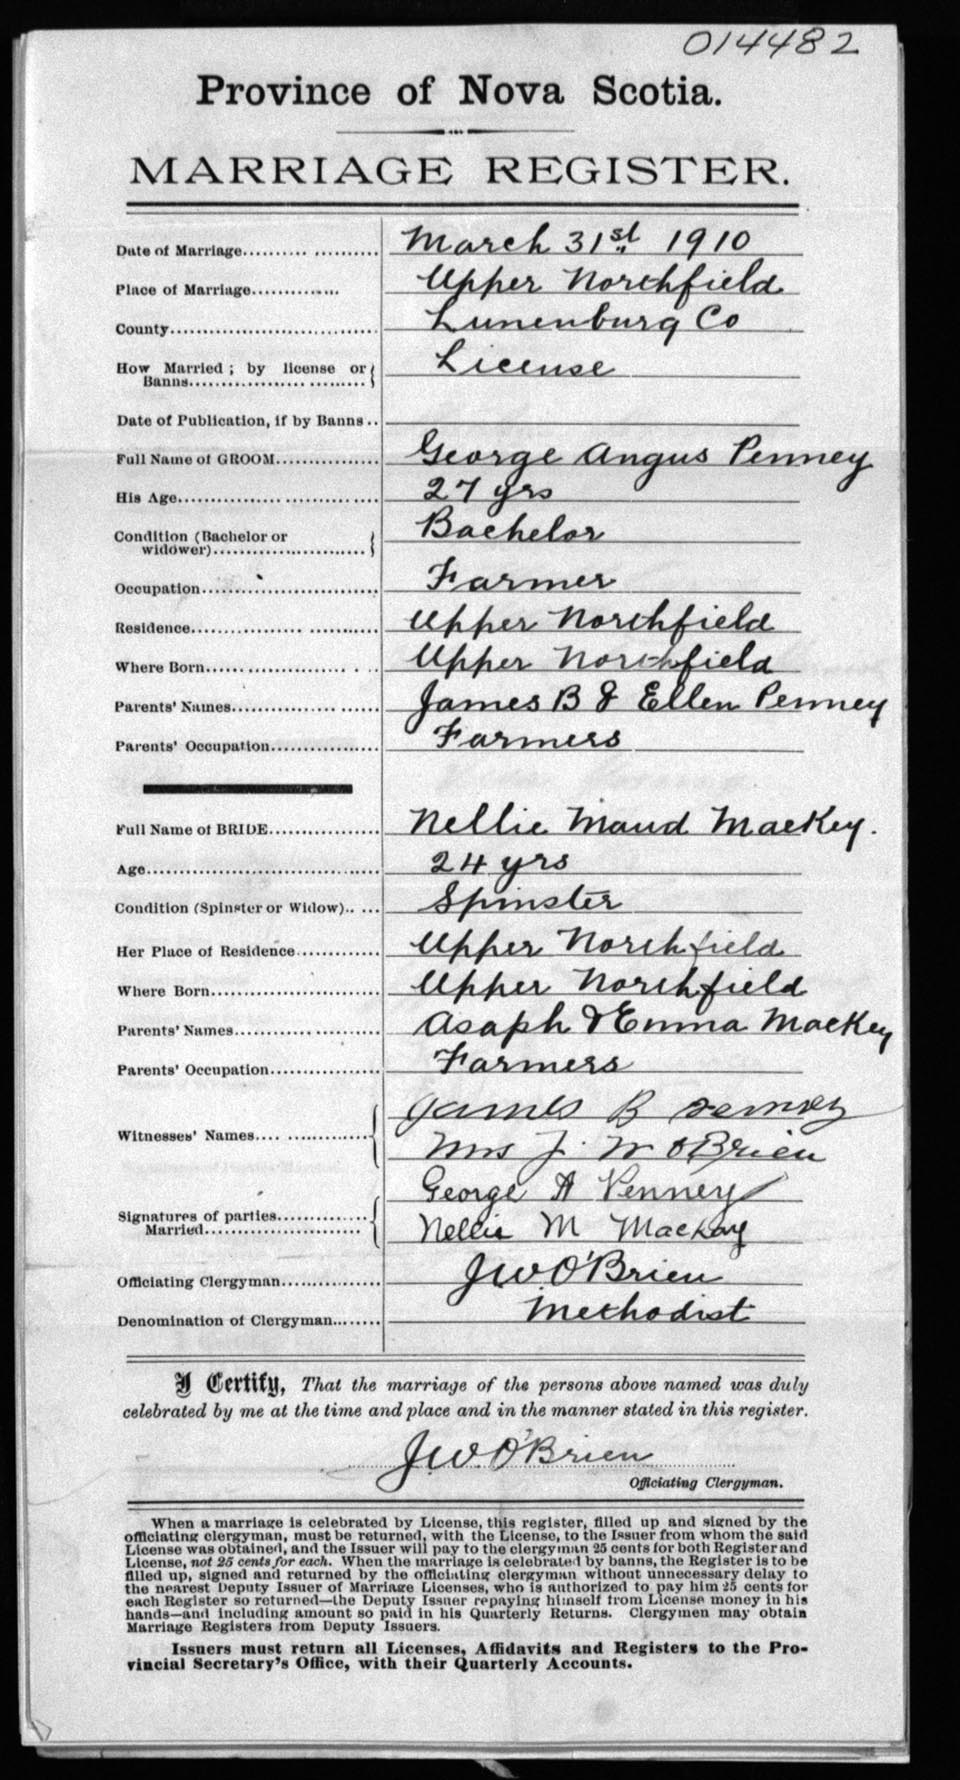 014482
Province of Nova Scotia.
MARRIAGE REGISTER.
Date of Marriage.................... March 31st 1910
Place of Marriage............... Upper Northfield
County.............................. Lunenburg Co
How Married; by license or License
Banns..............................
Date of Publication, if by Banns..
Full Name of GROOM................ George Angus Penney
His Age............................. 27 yrs
Condition (Bachelor or Bachelor
widower)..........................
Occupation........................... Farmer
Residence........................... Upper Northfield
Where Born......................... Upper Northfield
Parents' Names..................... James B & Ellen Penney
Parents' Occupation................ Farmers
Full Name of BRIDE................ Nellie Maud MacKey.
Age.................................. 24 yrs
Condition (Spinster or Widow)..... Spinster
Her Place of Residence............ Upper Northfield
Where Born......................... Upper Northfield
Parents' Names..................... Asaph & Emma MacKey
Parents' Occupation................ Farmers
James B Penney
Witnesses' Names..................
Mrs J. W OBrien
George A Penney
Signatures of parties..............
Married......................... Nellie M Mackay
Officiating Clergyman.............. J.W. O'Brien
Denomination of Clergyman........ Methodist
I Certify, That the marriage of the persons above named was duly
celebrated by me at the time and place and in the manner stated in this register.
J.W. O'Brien
Officiating Clergyman.
When a marriage is celebrated by License, this register, filled up and signed by the
officiating clergyman, must be returned, with the License, to the Issuer from whom the said
License was obtained, and the Issuer will pay to the clergyman 25 cents for both Register and
License, not 25 cents for each. When the marriage is celebrated by banns, the Register is to be
filled up, signed and returned by the officiating clergyman without unnecessary delay to
the nearest Deputy Issuer of Marriage Licenses, who is authorized to pay him 25 cents for
each Register so returned—the Deputy Issuer repaying himself from License money in his
hands—and including amount so paid in his Quarterly Returns. Clergymen may obtain
Marriage Registers from Deputy Issuers.
Issuers must return all Licenses, Affidavits and Registers to the Pro-
vincial Secretary's Office, with their Quarterly Accounts.